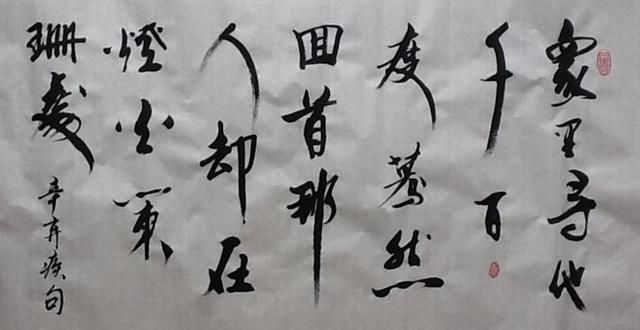 眾里寻他
千百
度驀然
回首那
人却在
燈火阑
珊處
辛弃疾句